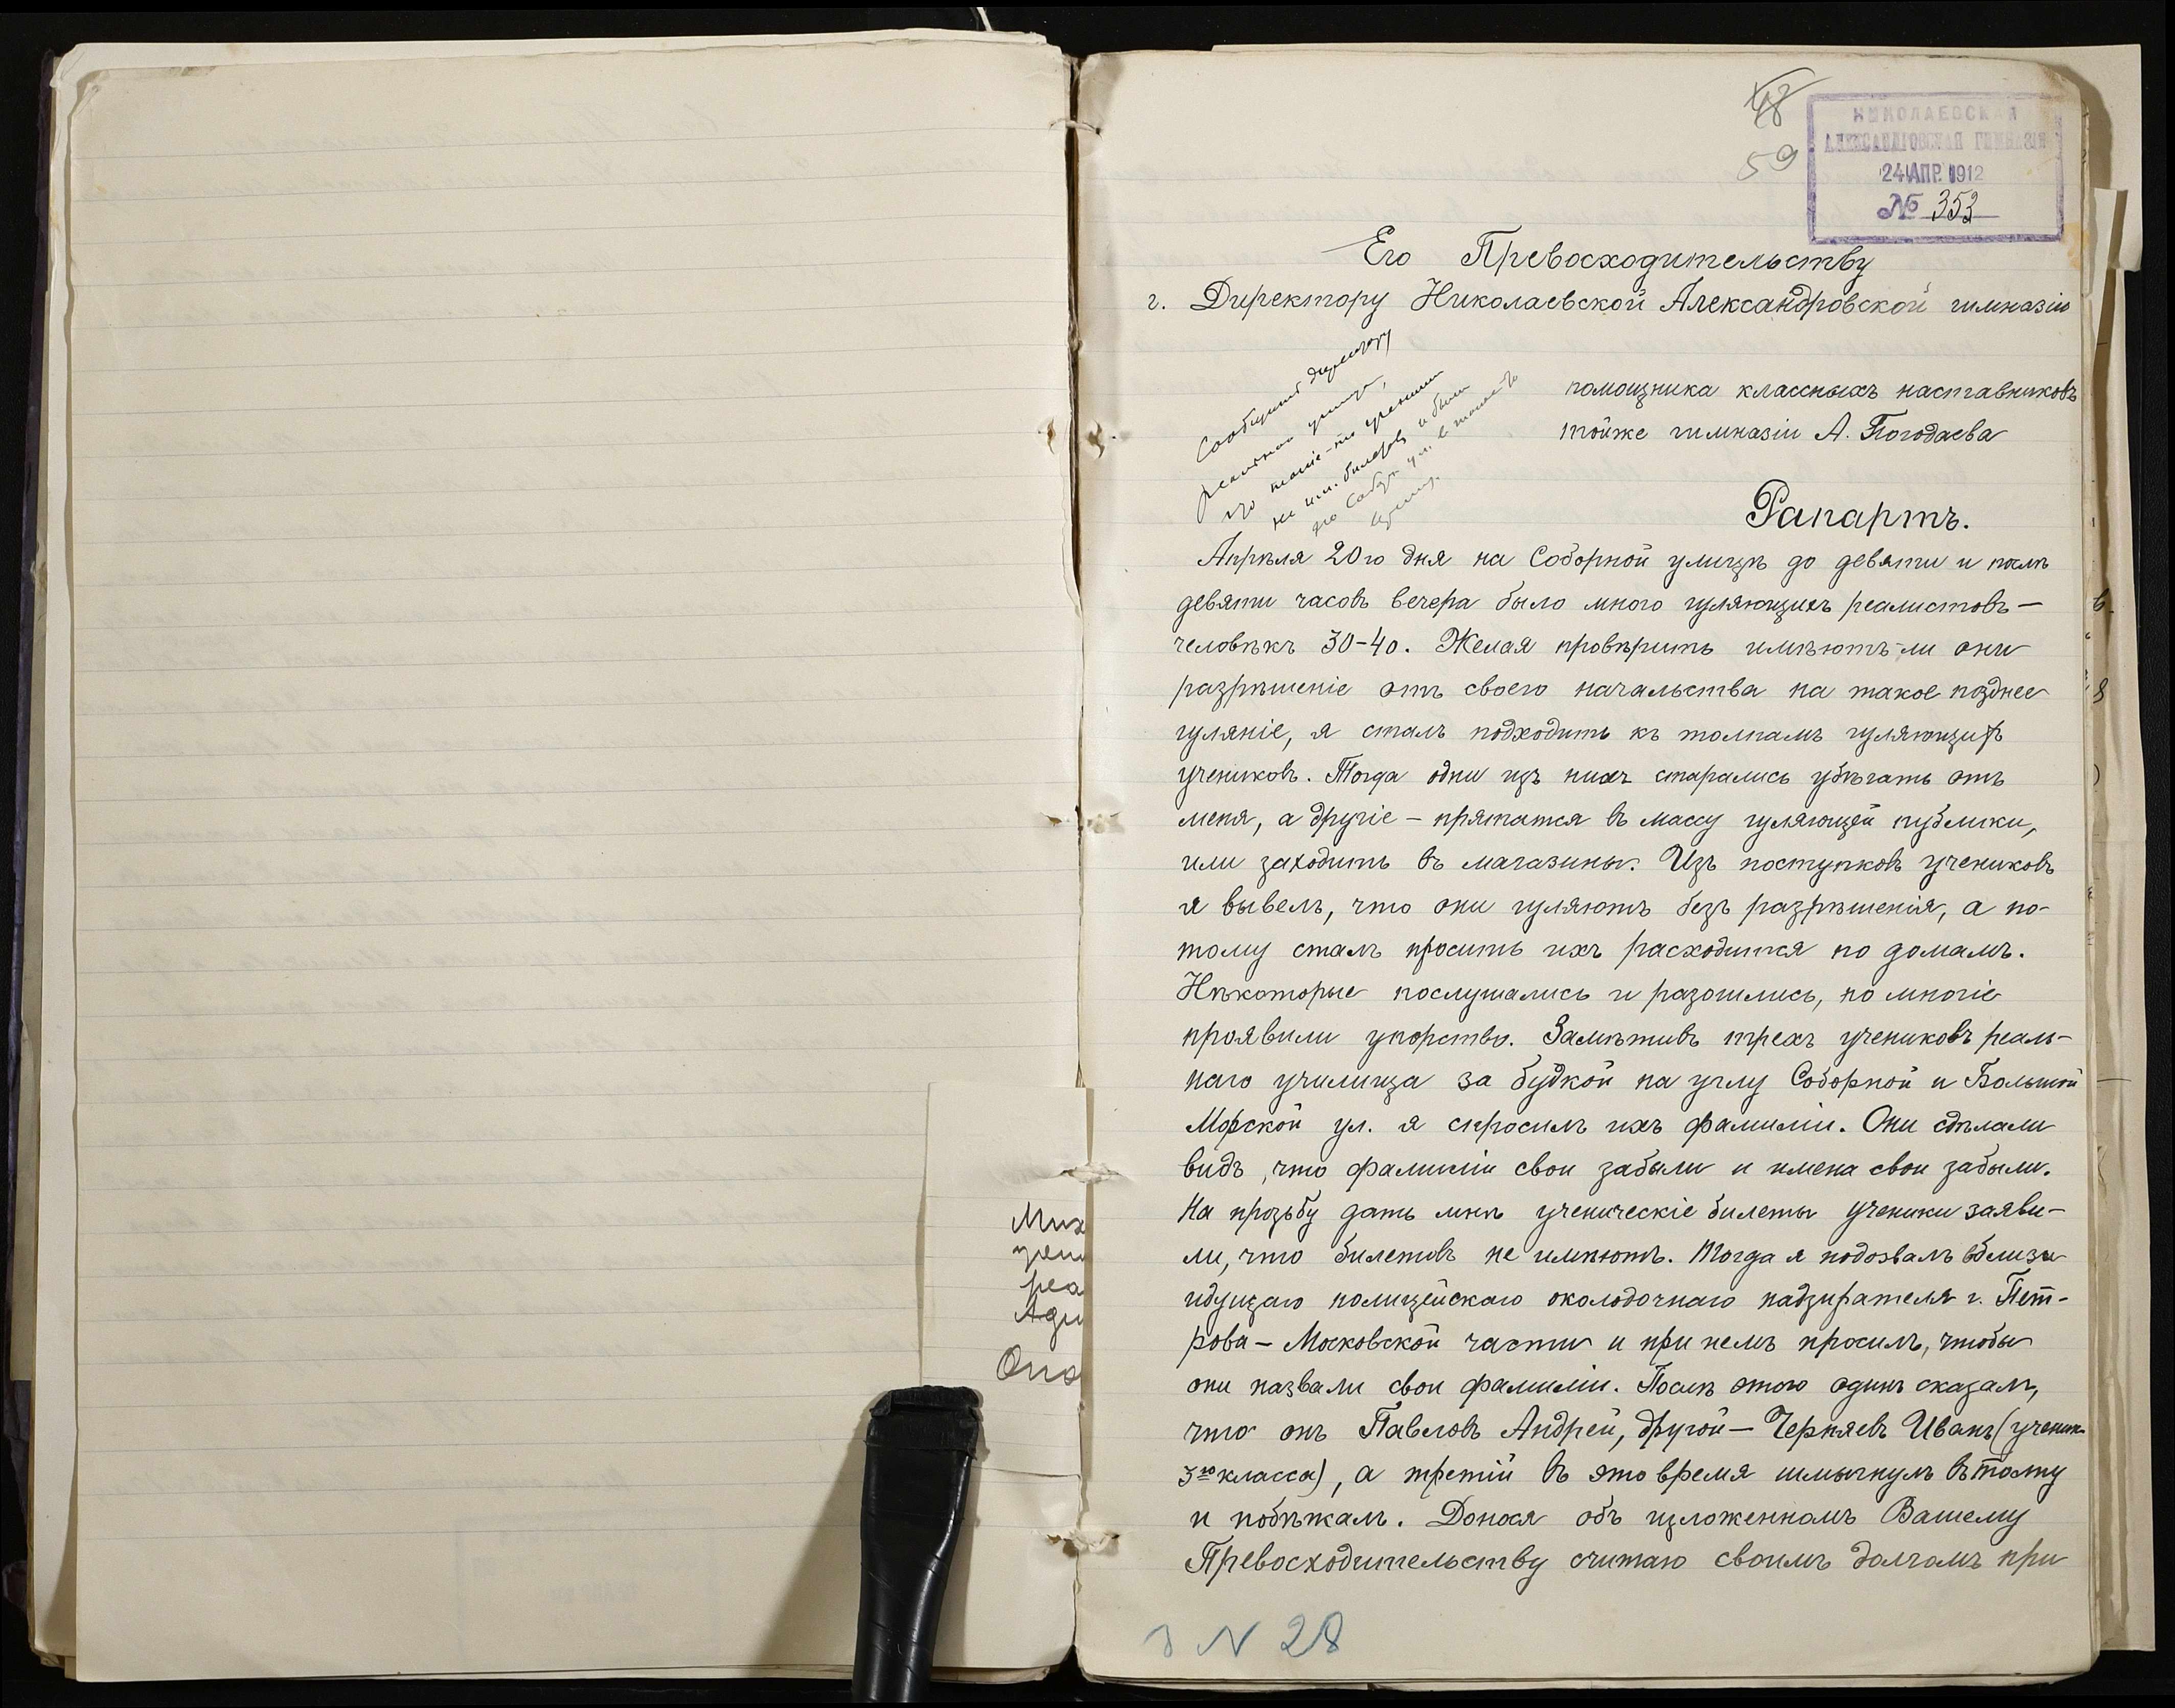 Мих
учен
реа
Адм
Она
48
59
НИКОЛАЕВСКАЯ
АЛЕКСАНДРОВСКАЯ ГИМНАЗІЯ
24 АПР. 1912
№ 353
Его Превосходительству
г. Директору Николаевской Александровской гимназіи
Сообщить директору
помощника классныхъ наставниковъ
тойже гимназіи А. Погодаева
Рапартъ.
Апрѣля 20го дня на Соборной улицѣ до девяти и послѣ
девяти часовъ вечера было много гуляющихъ реалистовъ —
человѣкъ 30-40. Желая провѣрить имѣютъ-ли они
разрѣшеніе отъ своего начальства на такое позднее
гуляніе, я сталъ подходить къ толпамъ гуляющихъ
учениковъ. Тогда одни изъ нихъ старались убѣгать отъ
меня, а другіе – прятатся въ массу гуляющей публики,
или заходить въ магазины. Изъ поступковъ учениковъ
я вывелъ, что они гуляютъ безъ разрѣшенія, а по-
тому сталъ просить ихъ расходится по домамъ.
Нѣкоторые послушались и разошлись, но многіе
проявили упорство. Замѣтивъ трехъ учениковъ реаль-
наго училища за будкой на углу Соборной и Большой
Морской ул. я спросилъ ихъ фамиліи. Они сдѣлали
видъ, что фамиліи свои забыли и имена свои забыли.
На прозьбу дать мнѣ ученическіе билеты ученики заяви-
ли, что билетовъ не имѣютъ. Тогда я подозвалъ вблизи
идущаго полицейскаго околодочнаго надзирателя г. Пет-
рова – Московской части и при немъ просилъ, чтобы
они назвали свои фамиліи. Послѣ этого одинъ сказалъ,
что онъ Павловъ Андрей, другой – Черняевъ Иванъ (ученик
3го класса), а третій въ это время шмыгнулъ въ толпу
и побѣжалъ. Донося объ изложенномъ Вашему
Превосходительству считаю своимъ долгомъ при
N 28